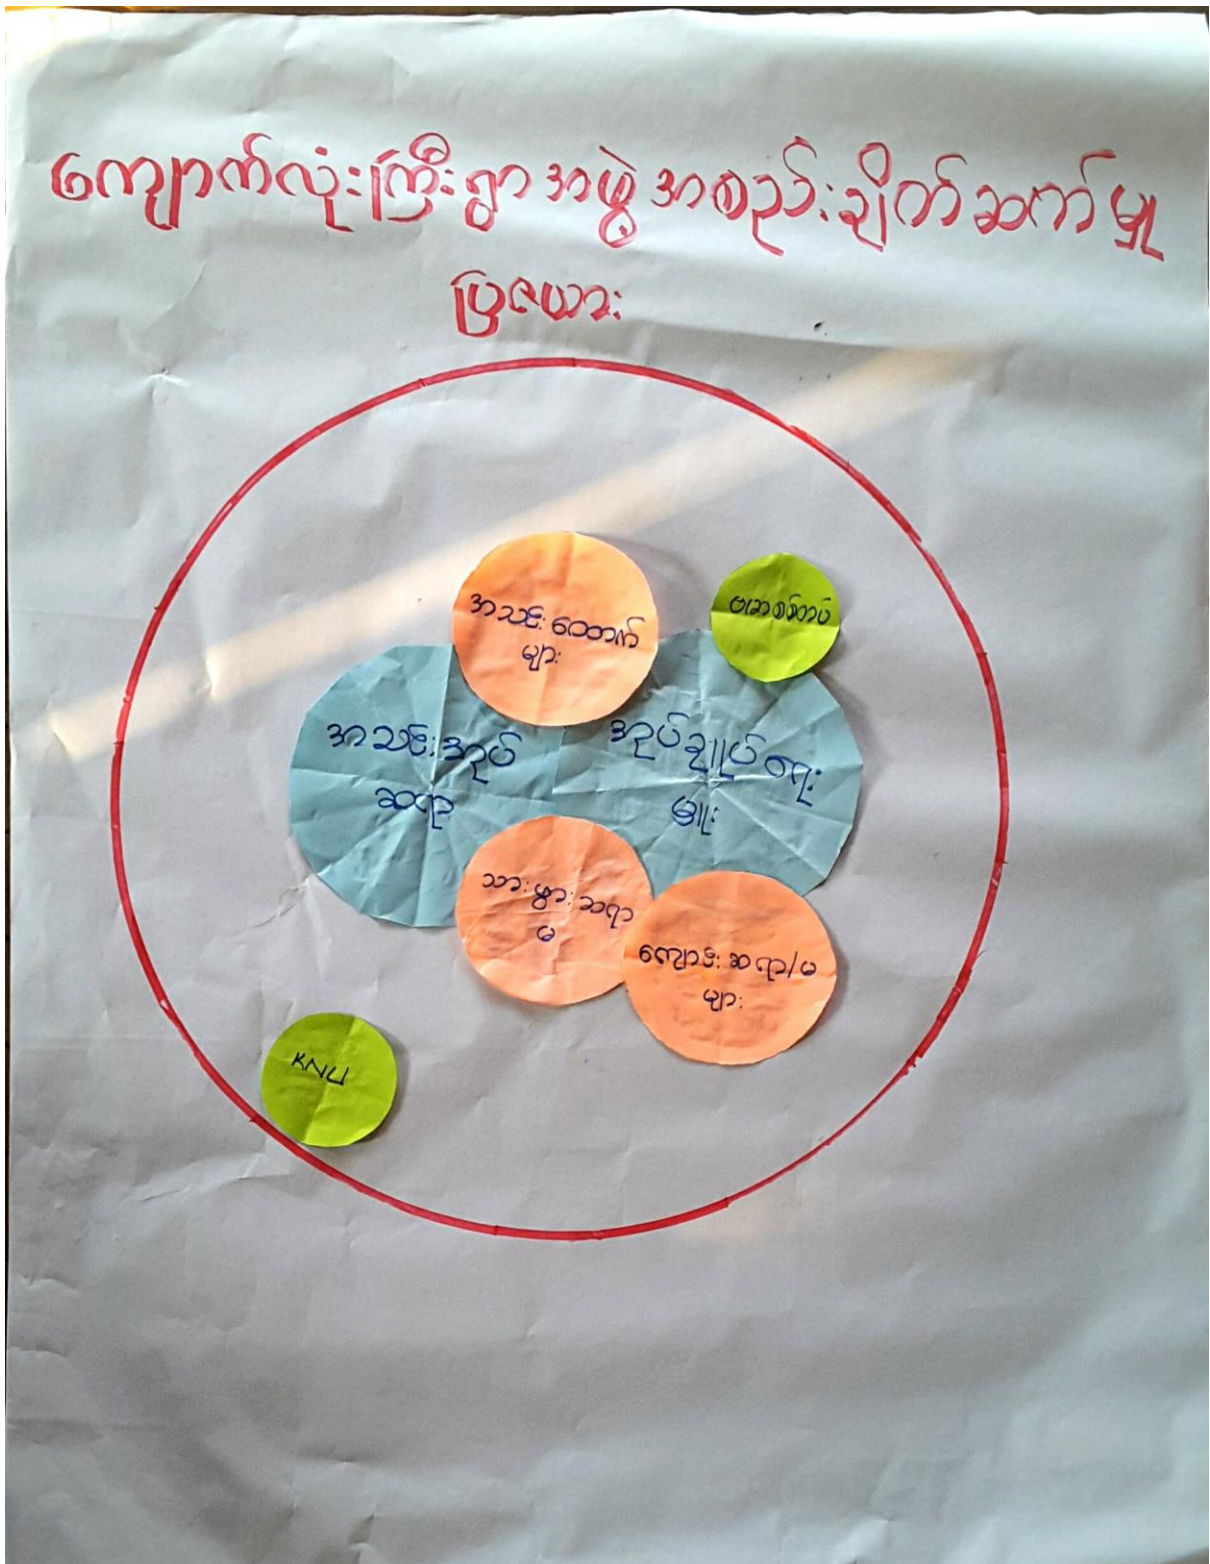 ကျောက်လုံးကြီးရွာ အဖွဲ့ အစည်းချိတ်ဆက်မှု
ပြဇယား
အသင်းထောက်
များ
ဗမာစစ်တပ်
အသင်းအုပ်
ဆရာ
အုပ်ချုပ်ရေး
မှူး
သားဖွားဆရာ
မ
ကျောင်းဆရာ/မ
များ
KNU